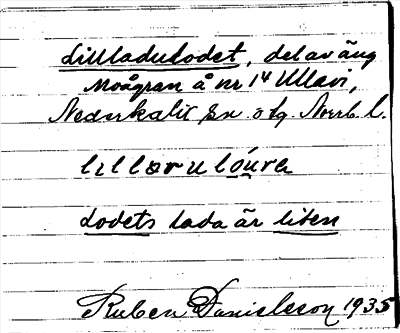 Lillladulodet, del av äng
Moågran å nr 14 Ullavi,
Nederkalix sn. o tg. Norrb. l.
Lodets lada är liten
Ruben Danielsson 1935